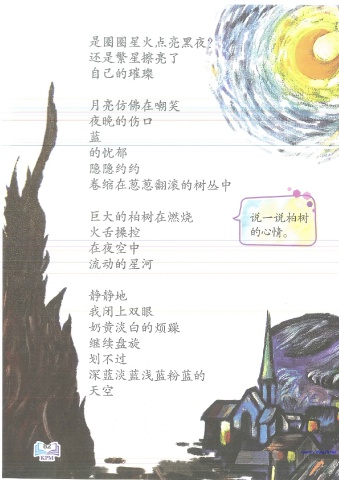 是团团星火点亮黑夜？
还是繁星擦亮了
自己的璀璨
月亮仿佛在嘲笑
夜晚的伤口
蓝
的忧郁
隐隐约约
卷缩在葱葱翻滚的树丛中
巨大的柏树在燃烧
火舌操控
在夜空中
流动的星河
说一说柏树
的心情。
静静地
我闭上双眼
奶黄淡白的烦躁
继续盘旋
划不过
深蓝淡蓝浅蓝粉蓝的
天空
62
KPM